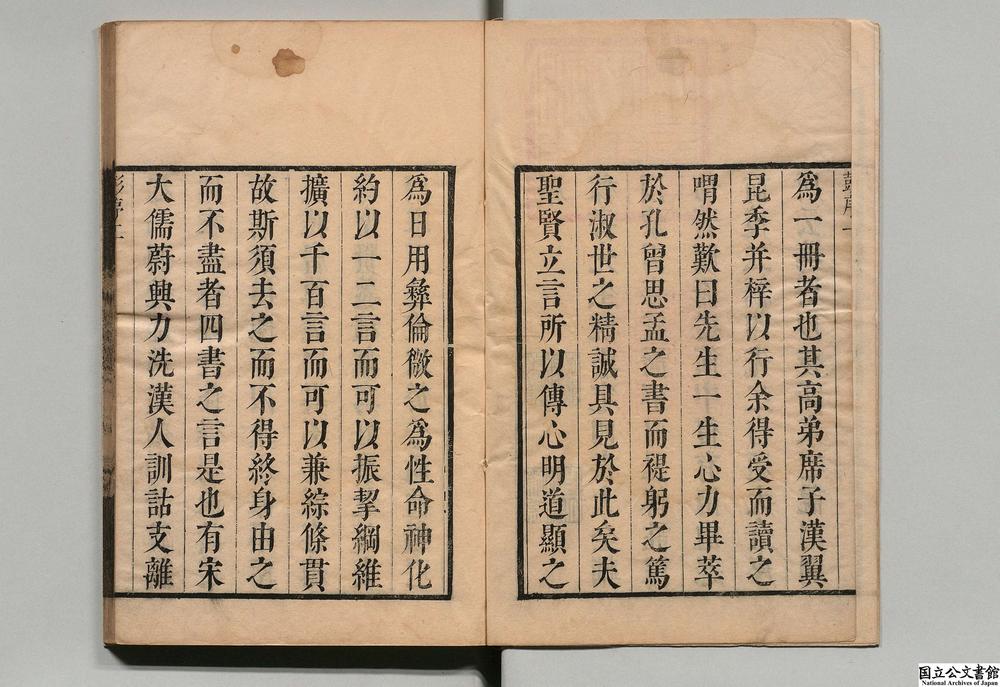 為一冊者也其高弟席子漢翼
昆季并梓以行余得受而讀之
喟然歎曰先生一生心力畢萃
於孔曾思孟之書而禔躬之篤
行淑世之精誠具見於此矣夫
聖賢立言所以傳心明道顯之
為日用彝倫微之為性命神化
約以一二言而可以振挈綱維
擴以千百言而可以兼綜條貫
故斯須去之而不得終身由之
而不盡者四書之言是也有宋
大儒蔚興力洗漢人訓詁支離
彭序二
国立公文書館
National Archives of Japan